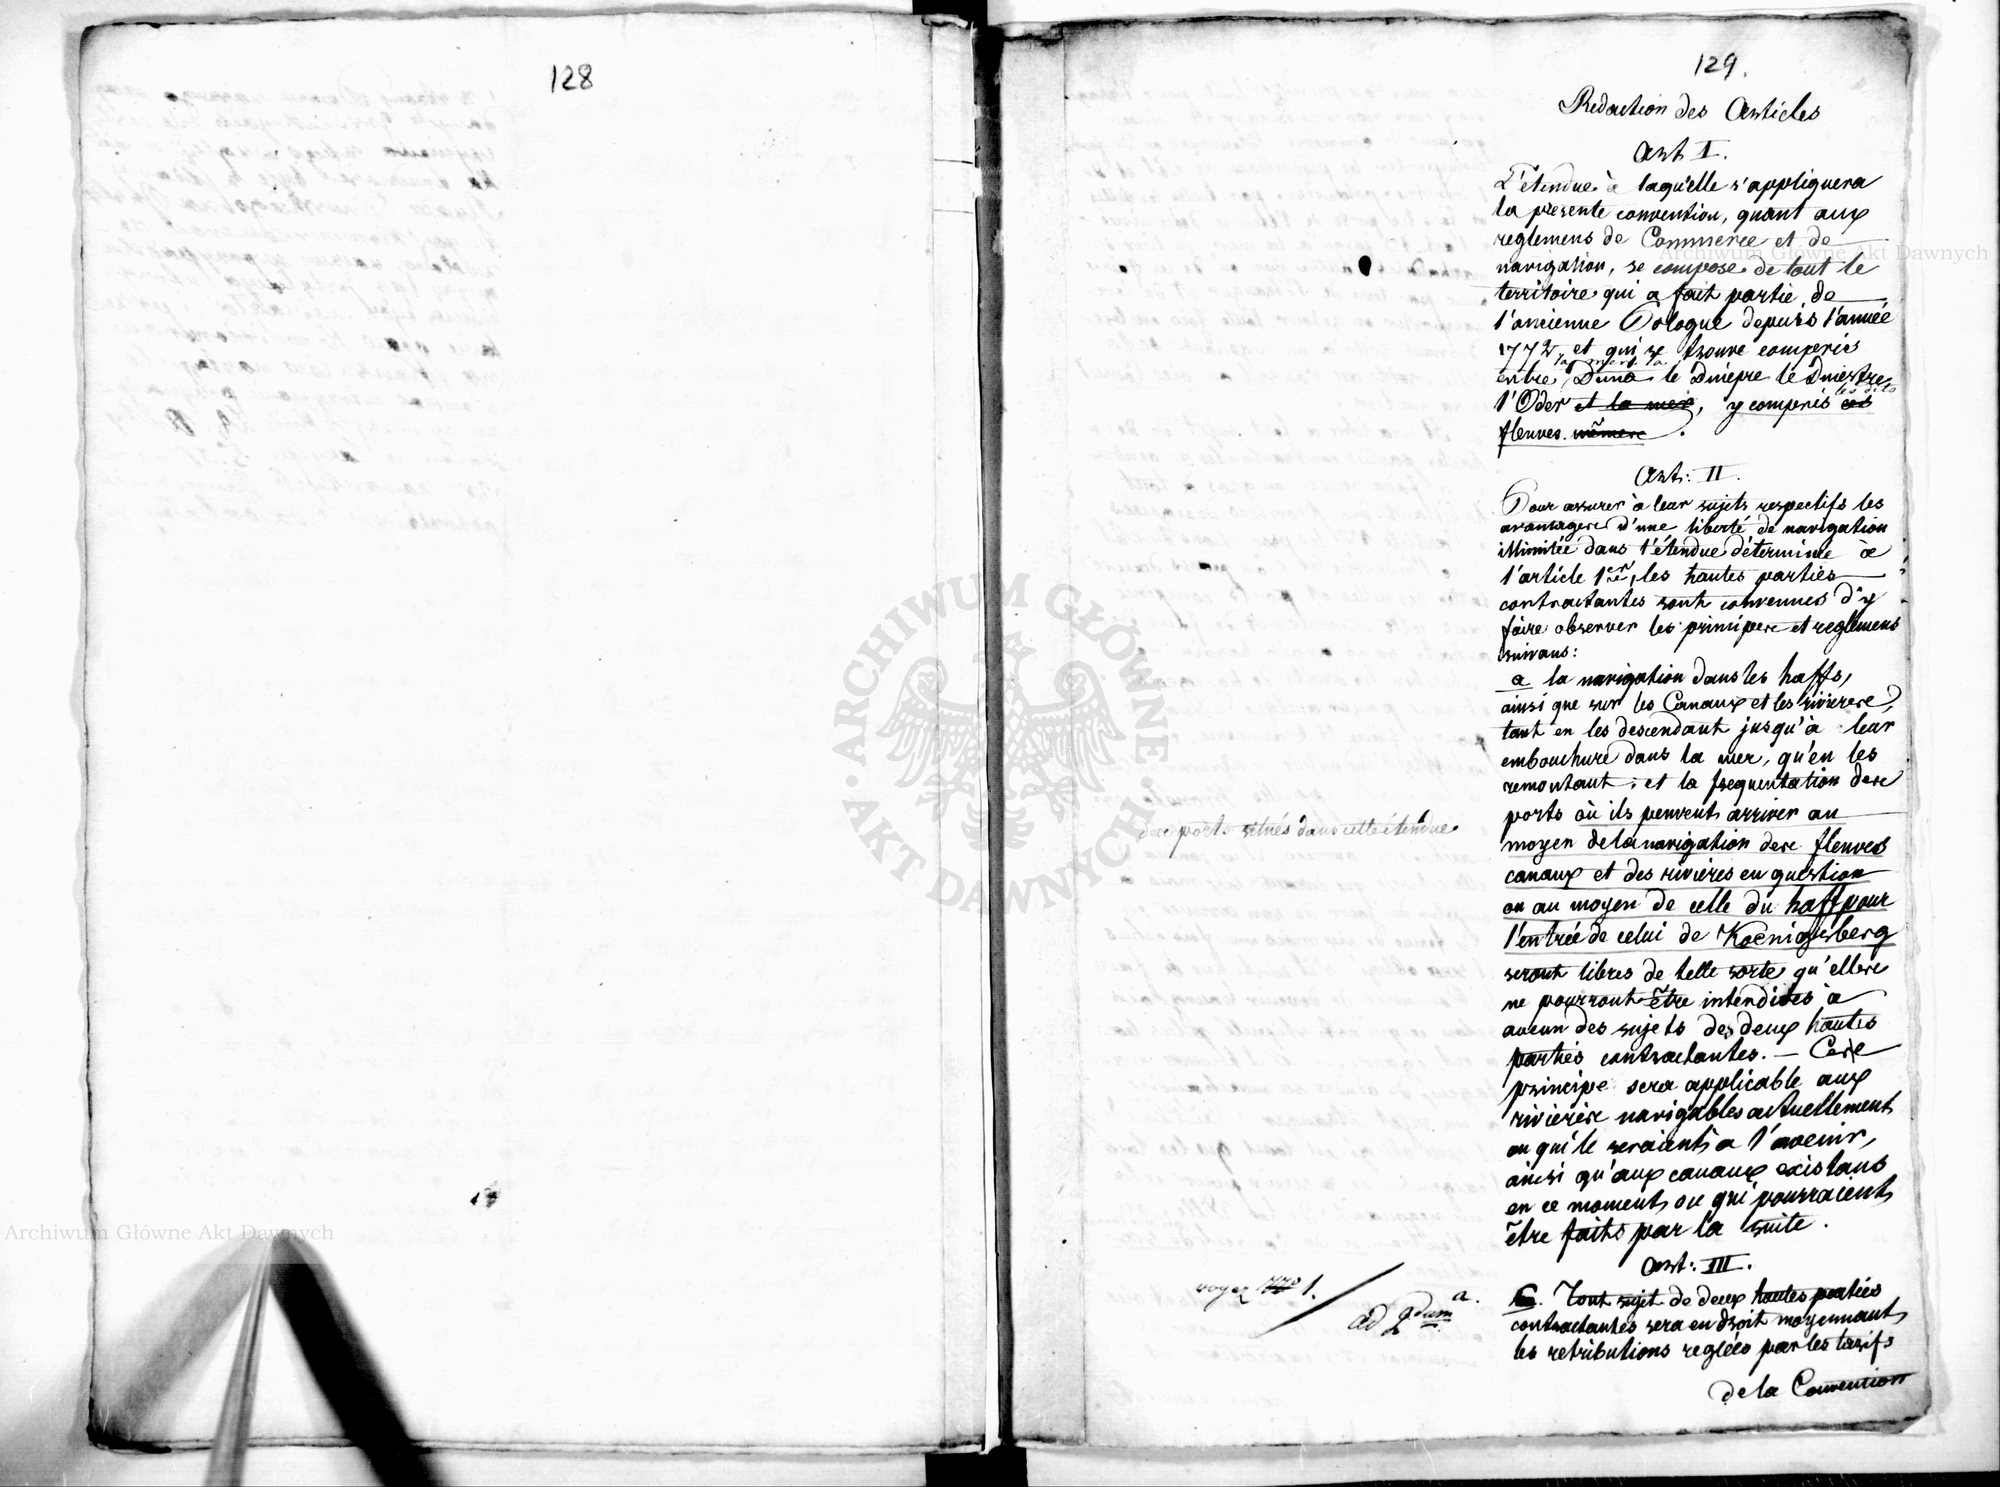 128
129.
Redaction des Articles
Art I.
L'étendue à laqu'elle s'appliquera
la presente convention, quant aux
reglemens de Commerce et de
navigation, se compose de tout le
territoire qui a fait partie de
l'ancienne Pologne depuis l'année
1772 et qui se trouve compris
la mer, la
entre Duna le Dniepre le Dniestre
l'Oder et la mer, y compris ces
les dits
fleuves même.
Art: II.
Pour assurer à leur sujets respectifs les
avantages d'une liberté de navigation
illimitée dans l'étendue déterminée à
l'article 1er, les hautes parties
contractantes sont convenues d'y
faire observer les principes et reglemens
suivans:
a la navigation dans les haffs,
ainsi que sur les Canaux et les rivieres,
tant en les descendant jusqu'à leur
embouchure dans la mer, qu'en les
remontant, et la frequentation des
ports où ils peuvent arriver au
moyen de la navigation des fleuves
canaux et des rivières en question
ou au moyen de celle du haff pour
l'entrée de celui de Koenigsberg
seront libres de telle sorte qu'elles
ne pourront être interdites à
aucun des sujets des deux hautes
parties contractantes. — Ce
principe sera applicable aux
rivieres navigables actuellement
ou qui le seraient à l'avenir,
ainsi qu'aux canaux existans
en ce moment ou qui pourraient
être faits par la suite.
des ports situés dans cette étendue
Art: III.
Tout sujet de deux hautes parties
contractantes sera en droit moyennant
les retributions reglées par les tarifs
de la Convention
voyez 1.
ad 2dum a.
Archiwum Główne Akt Dawnych
Archiwum Główne Akt Dawnych
ARCHIWUM GŁÓWNE
AKT DAWNYCH